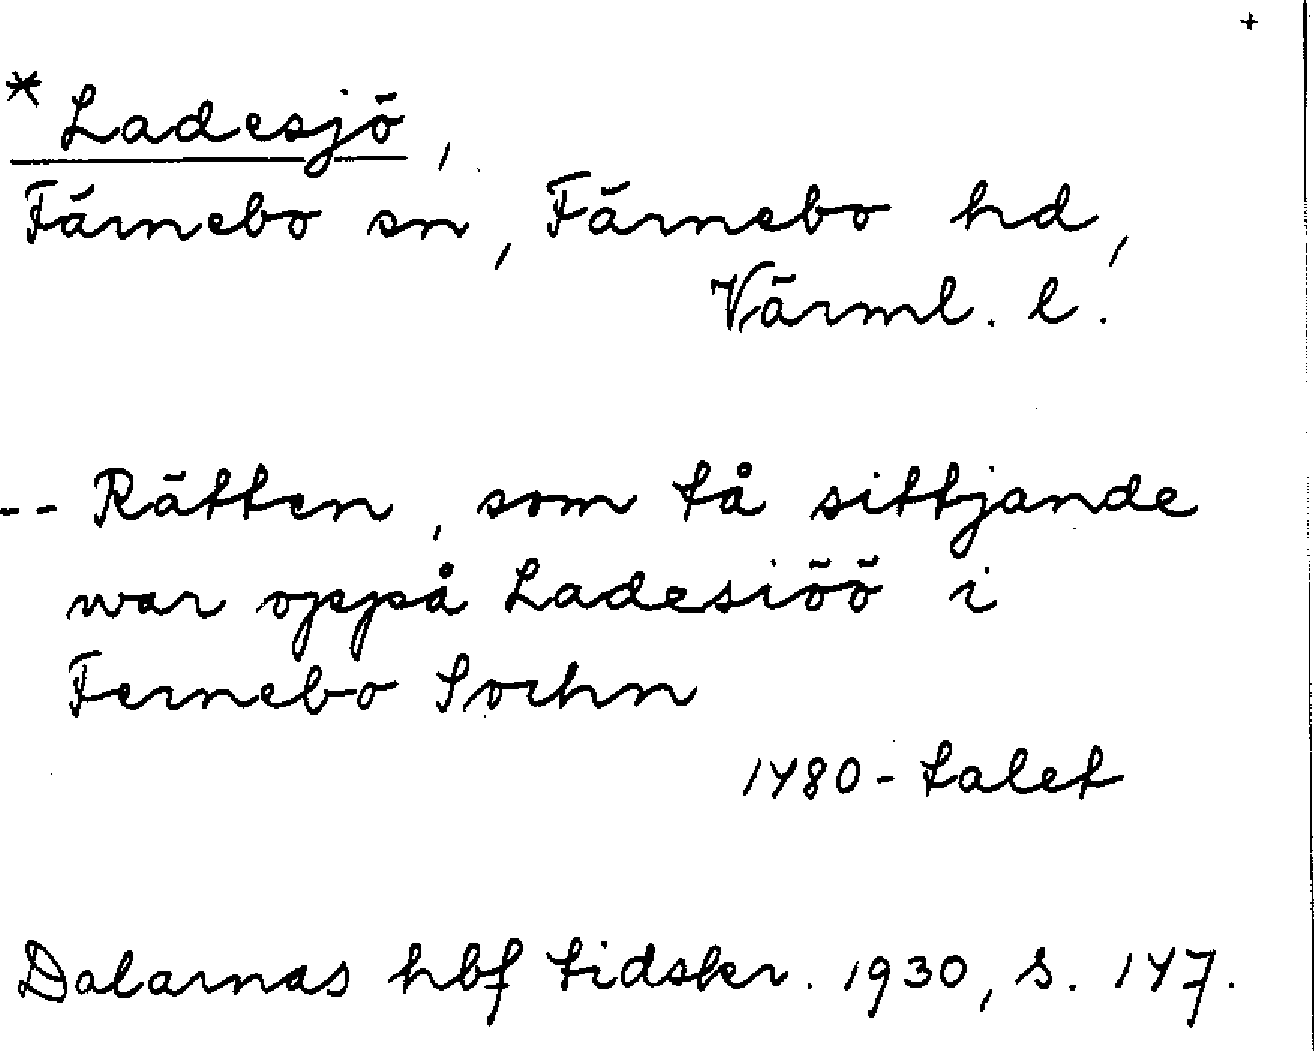 +
* Ladesjö,
Färnebo sn, Färnebo hd,
Värml. l.
-- Rätten, som tå sittjande
war oppå Ladesiöö i
Fernebo Sochn
1480-talet
Dalarnas hbf tidskr. 1930, s. 147.